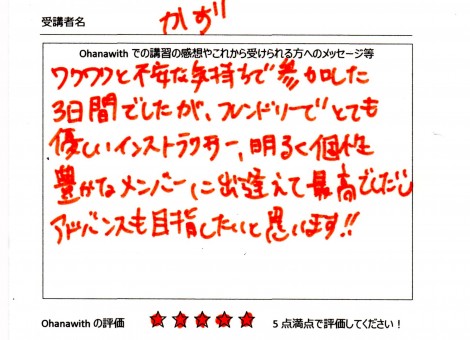 受講者名 かず
Ohanawith での講習の感想やこれから受けられる方へのメッセージ等
ワクワクと不安な気持ちで参加した
3日間でしたが、フレンドリーでとても
優しいインストラクター、明るく個性
豊かなメンバーに出逢えて最高でしたし
アドバンスも目指したいと思います!!
Ohanawith の評価 ★★★★★ 5 点満点で評価してください！